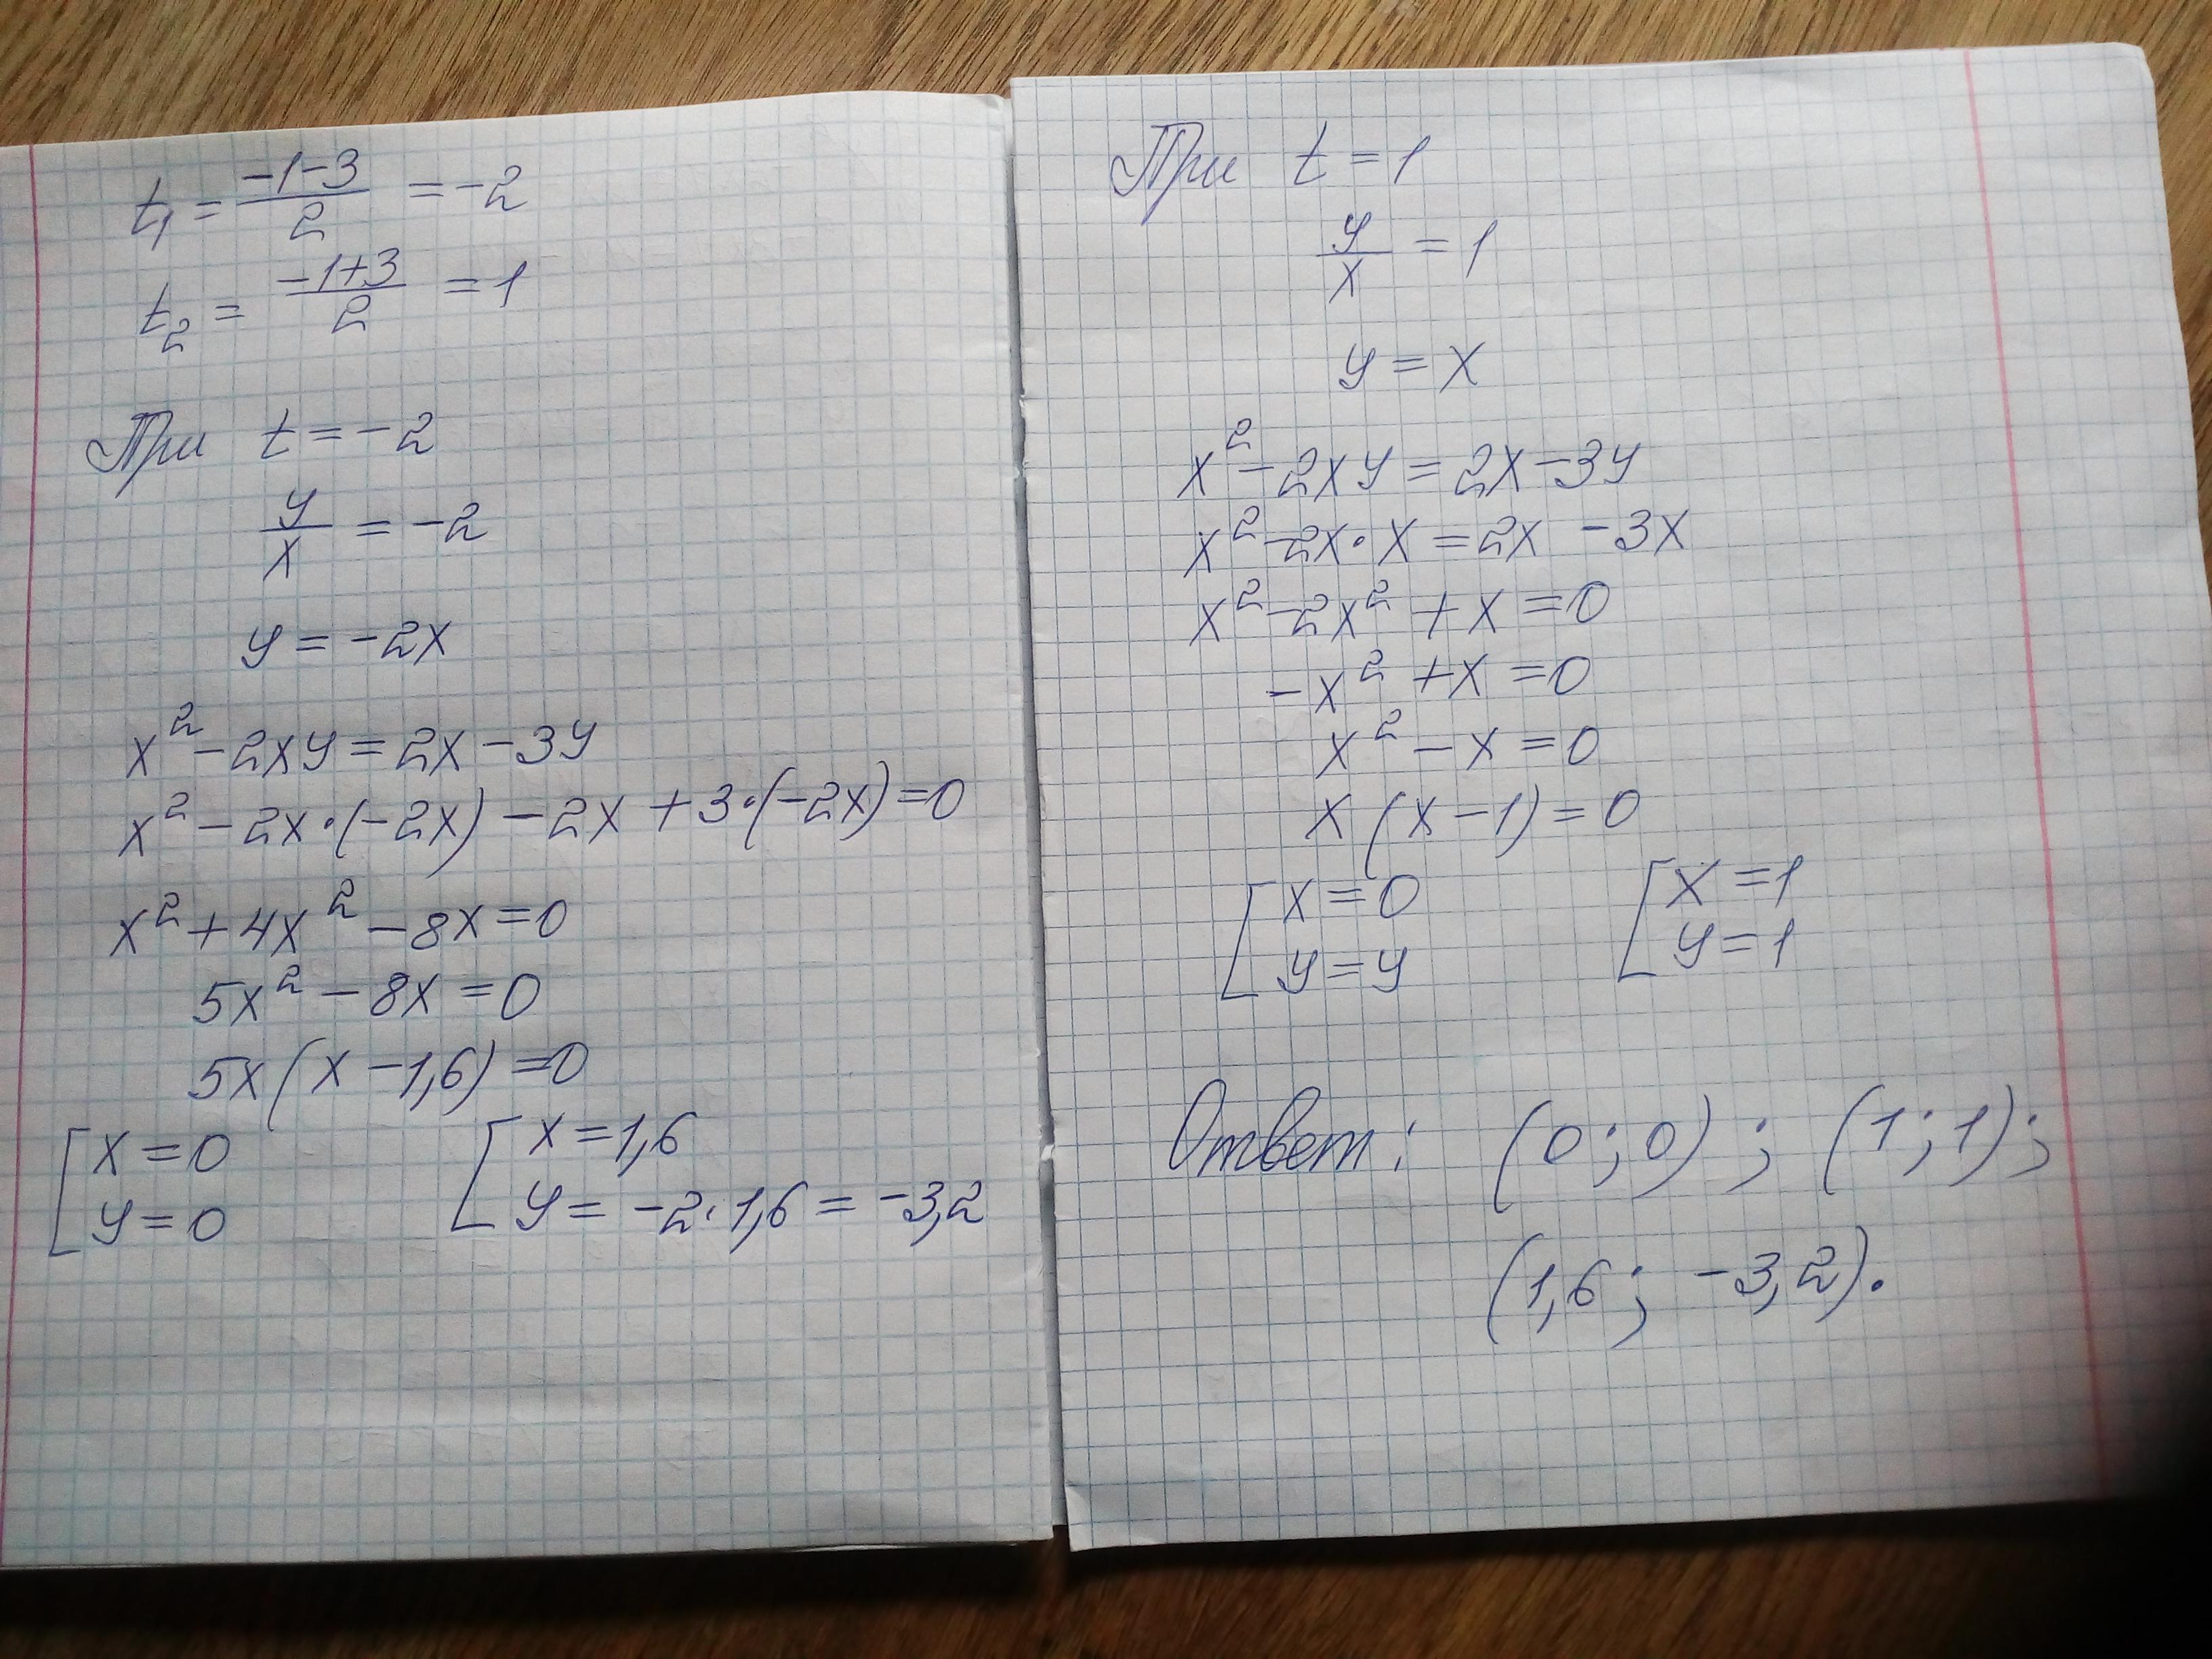 t₁ = (-1-3)/2 = -2
t₂ = (-1+3)/2 = 1
При t = -2
y/x = -2
y = -2x
x² - 2xy = 2x - 3y
x² - 2x·(-2x) - 2x + 3·(-2x) = 0
x² + 4x² - 8x = 0
5x² - 8x = 0
5x(x - 1,6) = 0
[x = 0 [x = 1,6
y = 0 y = -2·1,6 = -3,2
При t = 1
y/x = 1
y = x
x² - 2xy = 2x - 3y
x² - 2x·x = 2x - 3x
x² - 2x² + x = 0
-x² + x = 0
x² - x = 0
x(x - 1) = 0
[x = 0 [x = 1
y = y y = 1
Ответ: (0; 0); (1; 1);
(1,6; -3,2).